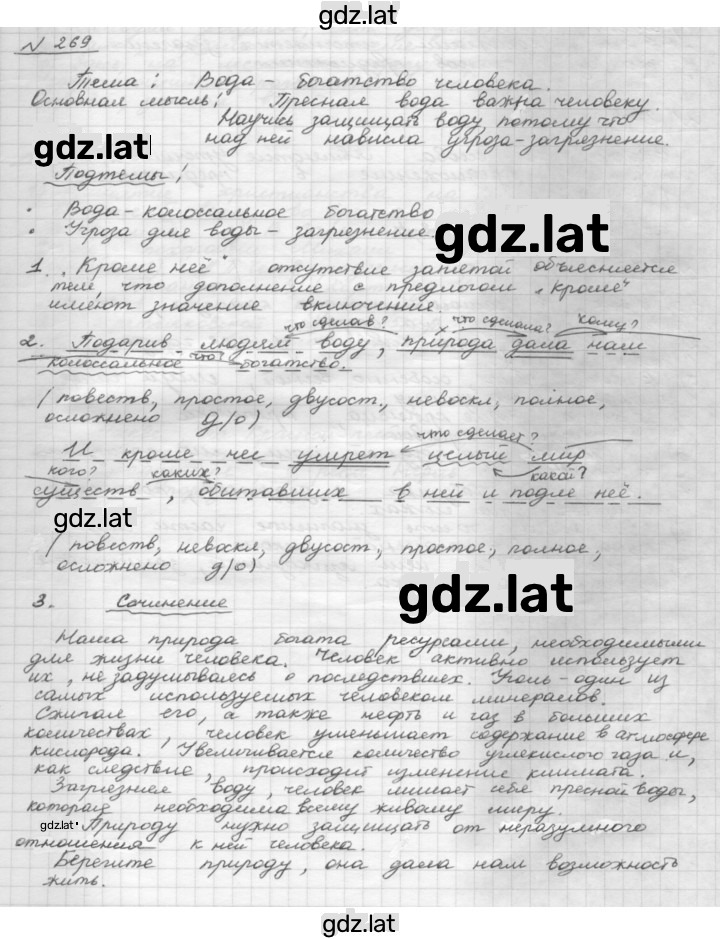 gdz.lat
N 269
Тема: Вода - богатство человека.
Основная мысль: Пресная вода важна человеку.
Научись защищать воду потому что
над ней нависла угроза-загрязнение.
gdz.lat
Подтемы:
• Вода-колоссальное богатство
• Угроза для воды - загрязнение.
gdz.lat
1. „Кроме неё" отсутствие запятой объясняется
тем, что дополнение с предлогом „кроме"
имеют значение включение.
что сделав? что сделала? кому?
2. Подарив людям воду, природа дала нам
колоссальное что? богатство.
(повеств, простое, двусост., невоскл, полное,
осложнено д/о)
что сделает?
И кроме нее умрет целый мир
кого? каких? какой?
существ, обитавших в ней и подле неё.
gdz.lat
(повеств, невоскл, двусост, простое, полное,
осложнено д/о)
gdz.lat
3. Сочинение
Наша природа богата ресурсами, необходимыми
для жизни человека. Человек активно использует
их, не задумываясь о последствиях. Уголь-один из
самых используемых человеком минералов.
Сжигая его, а также нефть и газ в больших
количествах, человек уменьшает содержание в атмосфере
кислорода. Увеличивается количество углекислого газа и,
как следствие, происходит изменение климата.
Загрязняя воду, человек лишает себя пресной воды,
которая необходима всему живому миру.
gdz.lat
Природу нужно защищать от неразумного
отношения к ней человека.
Берегите природу, она дала нам возможность
жить.
gdz.lat